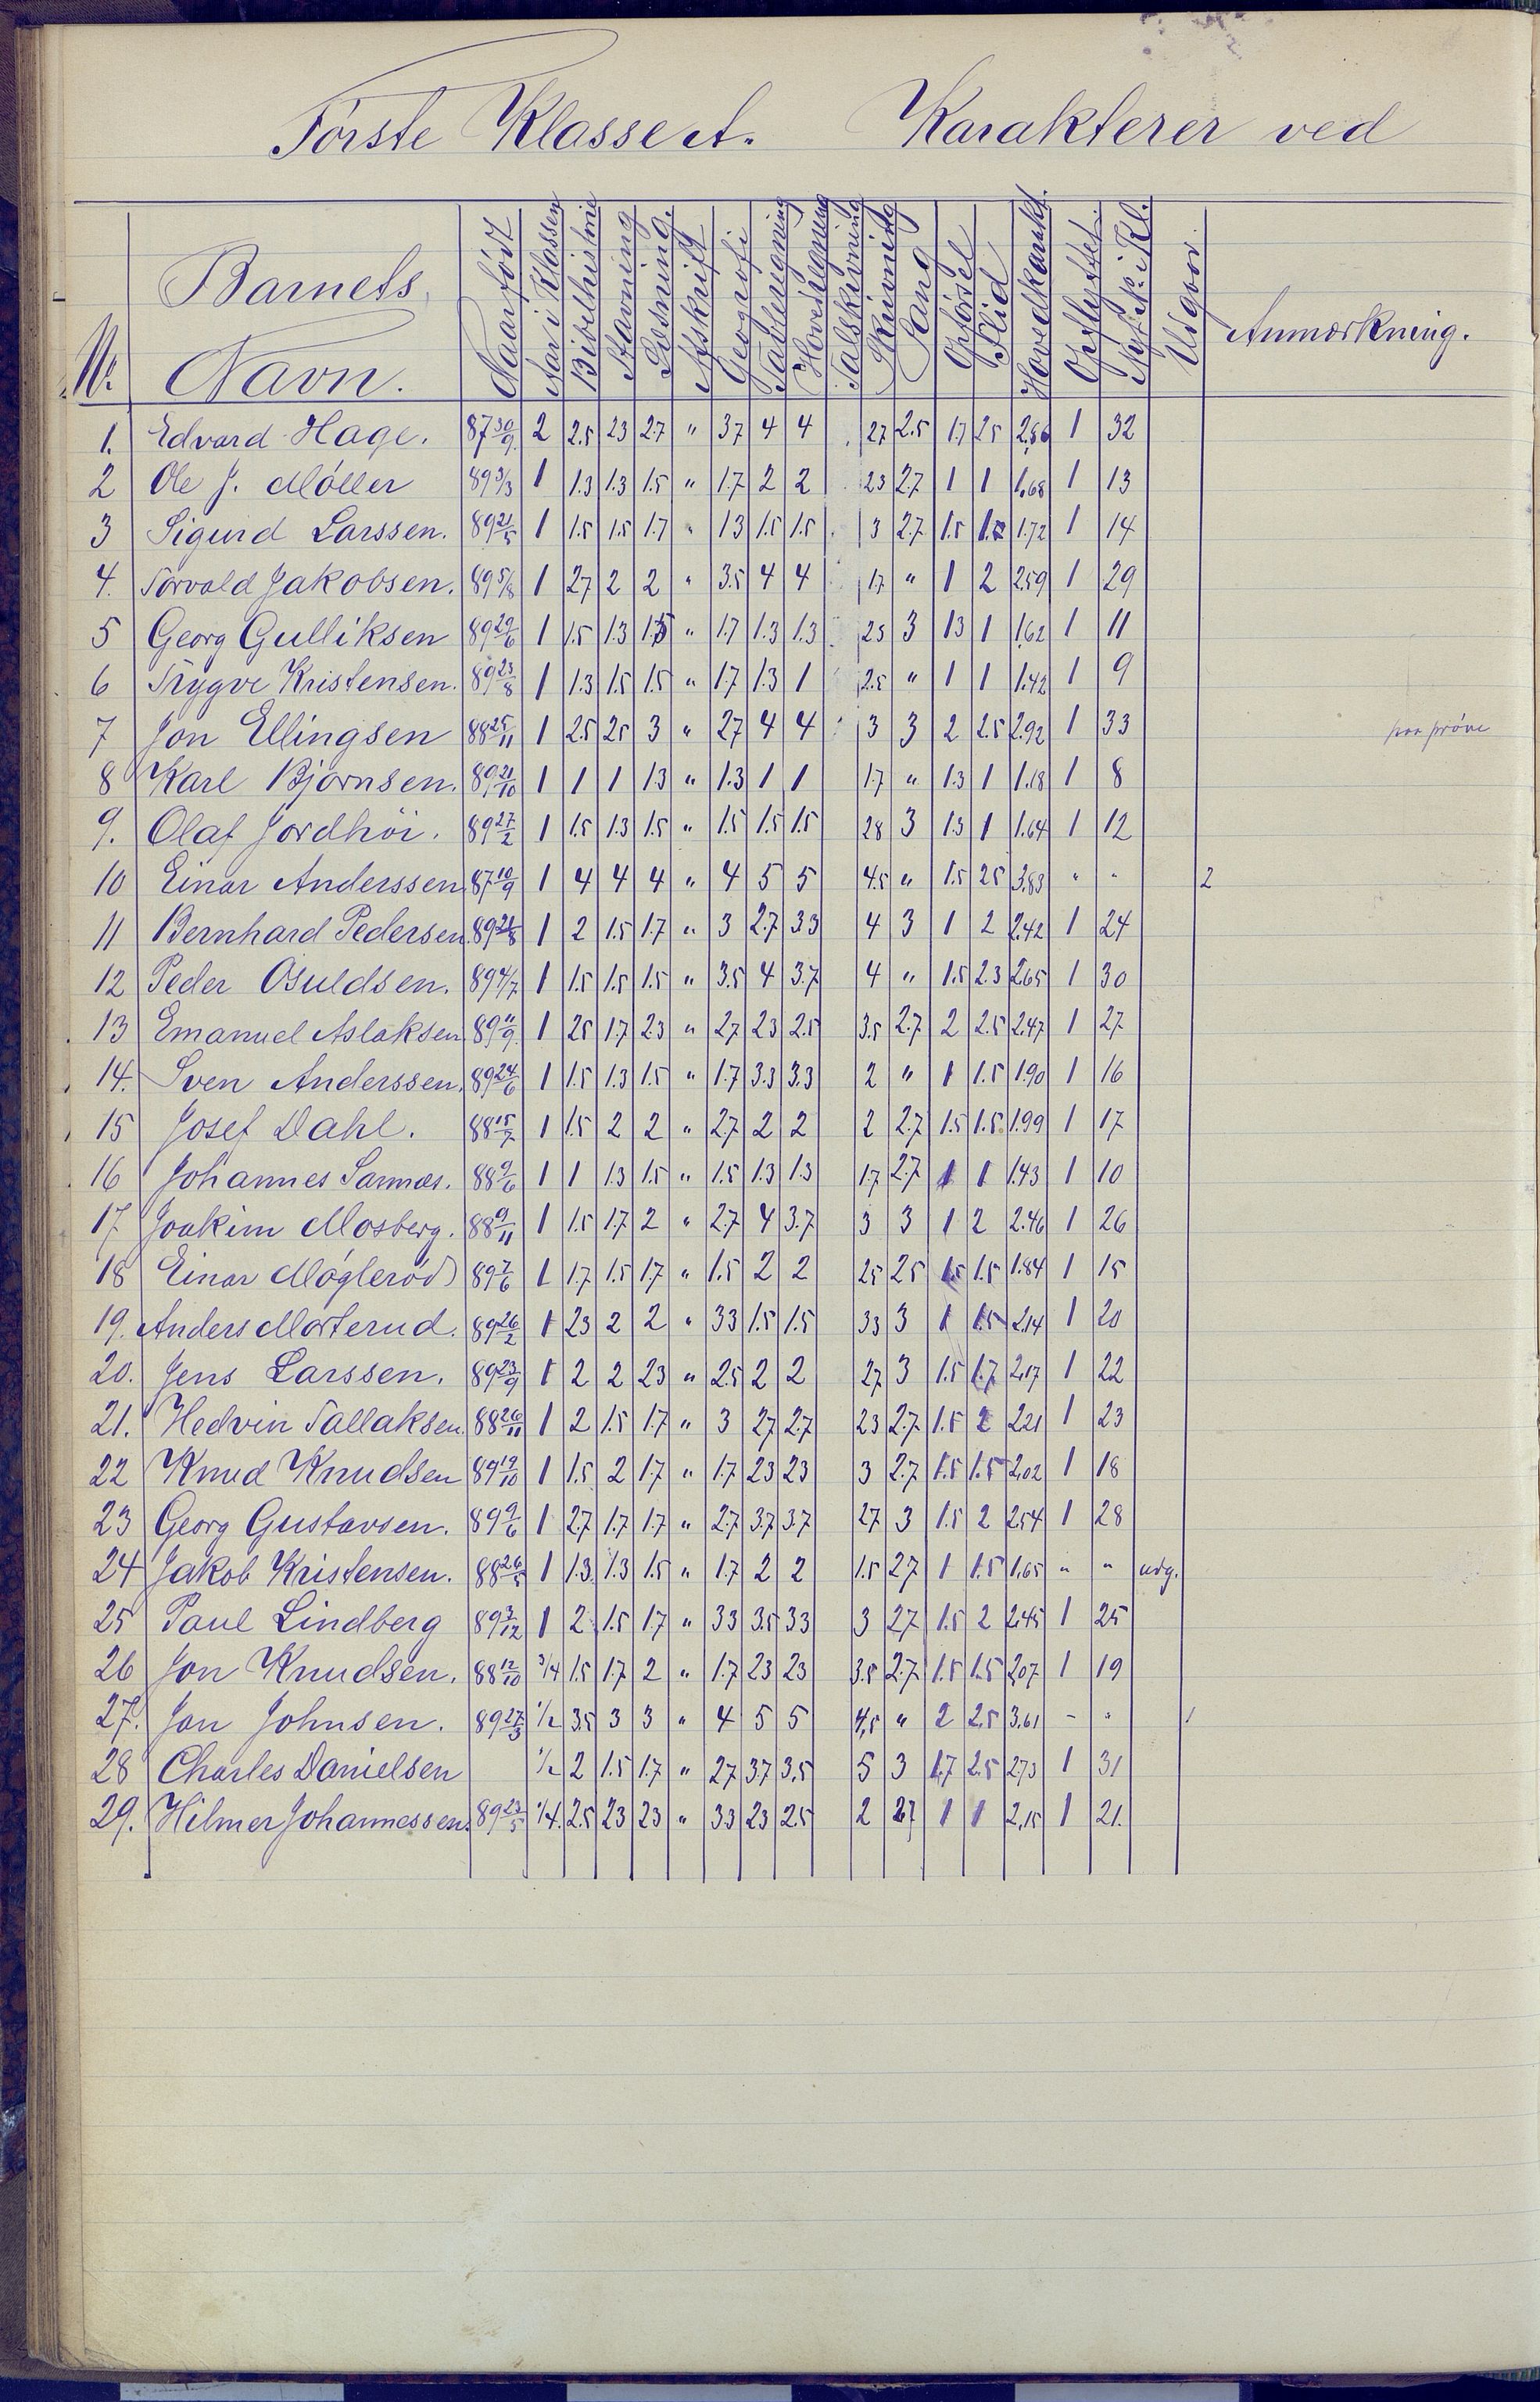 Første Klasse A. Karakterer ved
No. Barnets Navn. Naar født Aar i Klassen Bibelhistorie Stavning Læsning. Afskrift Geografi Tavleregning Hovedregning Talskrivning Skrivning Sang Opførsel Flid Hovedkarakt. Opflyttet. Nyt No. i Kl. Udgaar. Anmærkning.
1. Edvard Hage. 87 30/9 2 2.5 23 2.7 " 37 4 4 27 2.5 1.7 25 2,86 1 32
2 Ole J. Møller 89 3/3 1 1.3 1.3 1.5 " 1.7 2 2 23 2.7 1 1 1,68 1 13
3 Sigurd Larssen. 89 21/5 1 1.5 1.5 1.7 " 13 1.5 1.5 3 2.7 1.5 1.7 1.72 1 14
4. Torvald Jakobsen. 89 5/8 1 27 2 2 " 3.5 4 4 17 " 1 2 259 1 29
5 Georg Gulliksen 89 29/6 1 1.5 1.3 1.5 " 1.7 1.3 1.3 25 3 13 1 1,62 1 11
6 Trygve Kristensen. 89 23/8 1 1.3 1.5 1.5 " 1.7 1.3 1 2.5 " 1 1 1.42 1 9
7 Jon Ellingsen 88 25/11 1 2.5 25 3 " 27 4 4 3 3 2 2.5 2.92 1 33 paa prøve
8 Karl Bjørnsen. 89 21/10 1 1 1 1.3 " 1.3 1 1 1.7 " 1.3 1 1.18 1 8
9. Olaf Jordhøi. 89 27/2 1 1.5 1.3 1.5 " 1.5 1.5 1.5 28 3 1.3 1 1.64 1 12
10 Einar Anderssen 87 10/9 1 4 4 4 " 4 5 5 4.5 " 1.5 25 3,83 " " 2
11 Bernhard Pedersen. 89 21/8 1 2 1.5 1.7 " 3 2.7 33 4 3 1 2 2.42 1 24
12 Peder Osuldsen. 89 4/7 1 1.5 1.5 1.5 " 3.5 4 3.7 4 " 1.5 2.3 265 1 30
13 Emanuel Aslaksen 89 11/9 1 25 1.7 23 " 27 23 2.5 3.5 2.7 2 2.5 2.47 1 27
14. Sven Anderssen. 89 24/6 1 1.5 1.3 1.5 " 1.7 3.3 3.3 2 " 1 1.5 1.90 1 16
15 Josef Dahl. 88 15/7 1 1.5 2 2 " 2.7 2 2 2 2.7 1.5 1.5 1.99 1 17
16 Johannes Sannæs. 88 9/6 1 1 1.3 1.5 " 1.5 1.3 1.3 1.7 2.7 1 1 1.43 1 10
17 Joakim Mosberg. 88 9/11 1 1.5 1.7 2 " 2.7 4 3.7 3 3 1 2 2.46 1 26
18 Einar Møglerød 89 7/6 1 1.7 1.5 1.7 " 1.5 2 2 25 25 1.5 1.5 1.84 1 15
19. Anders Morterud. 89 26/2 1 23 2 2 " 33 1.5 1.5 33 3 1 1.5 2.14 1 20
20. Jens Larssen. 89 23/9 1 2 2 23 " 2.5 2 2 27 3 1.5 1.7 2,17 1 22
21. Hedvin Tallaksen. 88 26/11 1 2 1.5 1.7 " 3 27 2.7 23 2.7 1.5 2 221 1 23
22 Knud Knudsen 89 19/10 1 1.5 2 1.7 " 1.7 23 23 3 2.7 1.5 1.5 2,02 1 18
23 Georg Gustavsen. 89 9/6 1 2.7 1.7 1.7 " 2.7 3.7 3.7 27 3 1.5 2 2.54 1 28
24 Jakob Kristensen. 88 26/5 1 1.3 1.3 1.5 " 1.7 2 2 1.5 27 1 1.5 1,65 " " udg.
25 Paul Lindberg 89 3/12 1 2 1.5 1.7 " 33 3.5 33 3 27 1.5 2 2,45 1 25
26 Jon Knudsen. 88 12/10 3/4 1.5 1.7 2 " 1.7 23 23 3.5 2.7 1.5 1.5 2,07 1 19
27. Jan Johnsen. 89 27/3 1/2 3.5 3 3 " 4 5 5 4,5 " 2 2.5 3,61 - " 1
28 Charles Danielsen 1/2 2 1.5 1.7 " 27 3.7 3,5 5 3 1.7 2.5 2,73 1 31
29. Hilmer Johannessen. 89 23/5 1/4. 2.5 23 23 " 33 23 2.5 2 27 1 1 2,15 1 21.